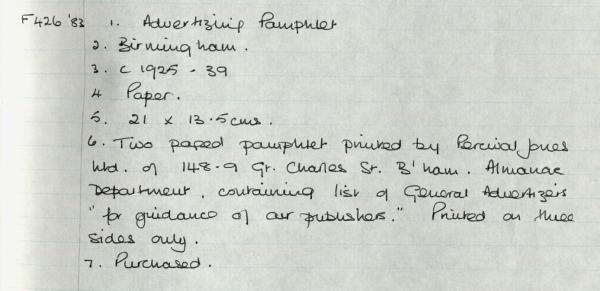 F426 '83 1. Advertizing Pamphlet
2. Birmingham.
3. c 1925 - 39
4 Paper.
5. 21 x 13.5 cms.
6. Two paged pamphlet printed by Percival Jones
Ltd. of 148-9 Gr. Charles St. B'ham. Almanac
Department, containing list of General Advertizers
"for guidance of our publishers." Printed on three
sides only.
7. Purchased.